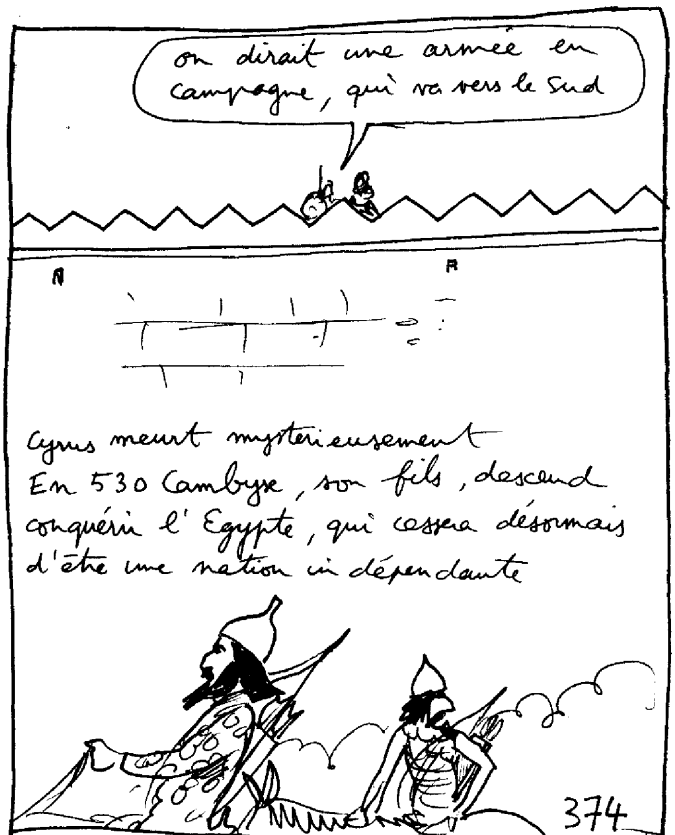 on dirait une armée en
campagne, qui va vers le Sud
Cyrus meurt mystérieusement
En 530 Cambyse, son fils, descend
conquérir l'Egypte, qui cessera désormais
d'être une nation indépendante
374